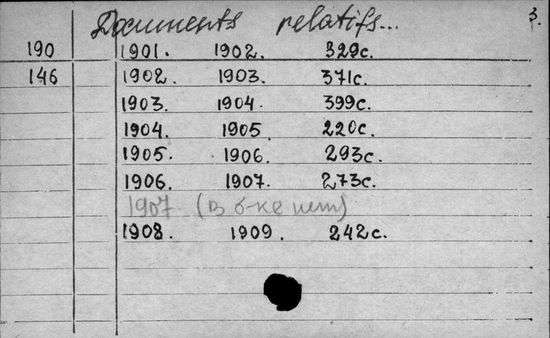 3.
Documents relatifs...
190 1901. 1902. 329с.
146 1902. 1903. 371с.
1903. 1904. 399с.
1904. 1905. 220с.
1905. 1906. 293с.
1906. 1907. 273с.
1907 (В б-ке нет)
1908. 1909. 242с.